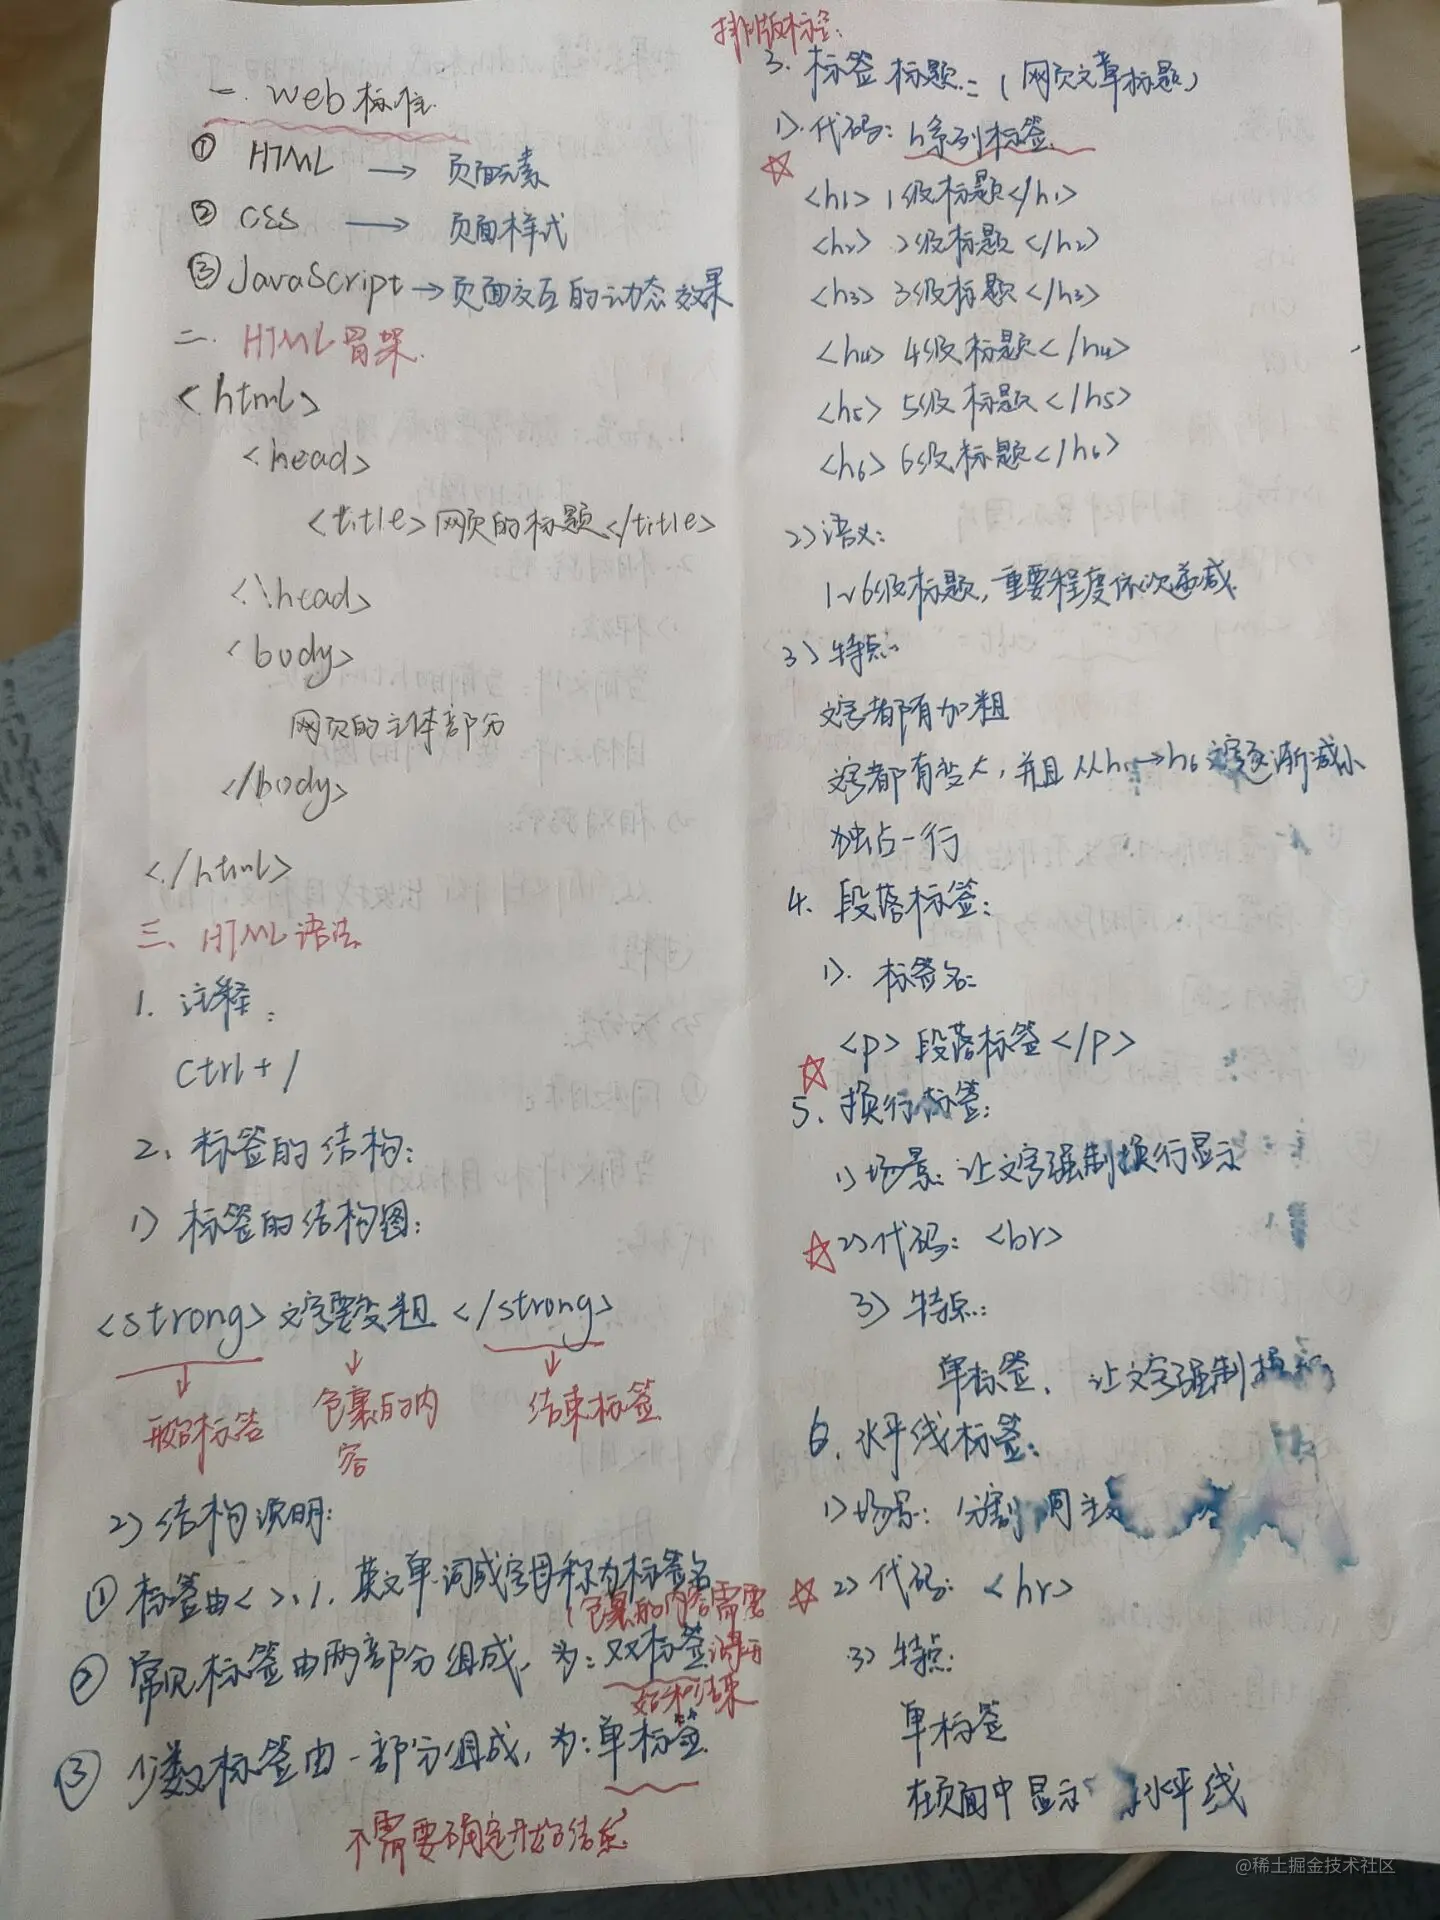 一. web标准
① HTML → 页面元素
② CSS → 页面样式
③ JavaScript → 页面交互的动态效果
二. HTML骨架.
<html>
<head>
<title>网页的标题</title>
<\head>
<body>
网页的主体部分
</body>
</html>
三、HTML语法
1. 注释:
Ctrl + /
2、标签的结构:
1) 标签的结构图:
<strong>文字要变粗</strong>
标签
包裹的内
容
结束标签
2) 结构说明:
① 标签由< >、/、英文单词或字母称为标签名
(包裹的内容需要
② 常见标签由两部分组成, 为: 双标签
始和结束
③ 少数标签由一部分组成, 为: 单标签
不需要确定开始
排版标签:
3. 标签标题: (网页文章标题)
1). 代码: h系列标签
<h1> 1级标题</h1>
<h2> 2级标题</h2>
<h3> 3级标题</h3>
<h4> 4级标题</h4>
<h5> 5级标题</h5>
<h6> 6级标题</h6>
2) 语义:
1~6级标题, 重要程度依次递减
3) 特点:
文字都有加粗
文字都有变大, 并且从h1→h6文字逐渐减小
独占一行
4. 段落标签:
1). 标签名:
<p>段落标签</p>
5. 换行标签:
1) 场景: 让文字强制换行显示
2) 代码: <br>
3) 特点:
单标签、让文字强制
6. 水平线标签:
1) 场景: 分割 同主
2) 代码: <hr>
3) 特点:
单标签
在页面中显示 水平线
@稀土掘金技术社区